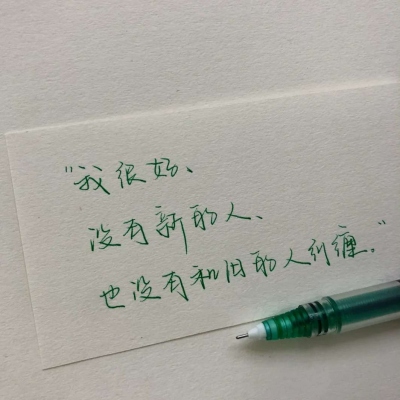 “我很好、
没有新的人、
也没有和旧的人纠缠。”